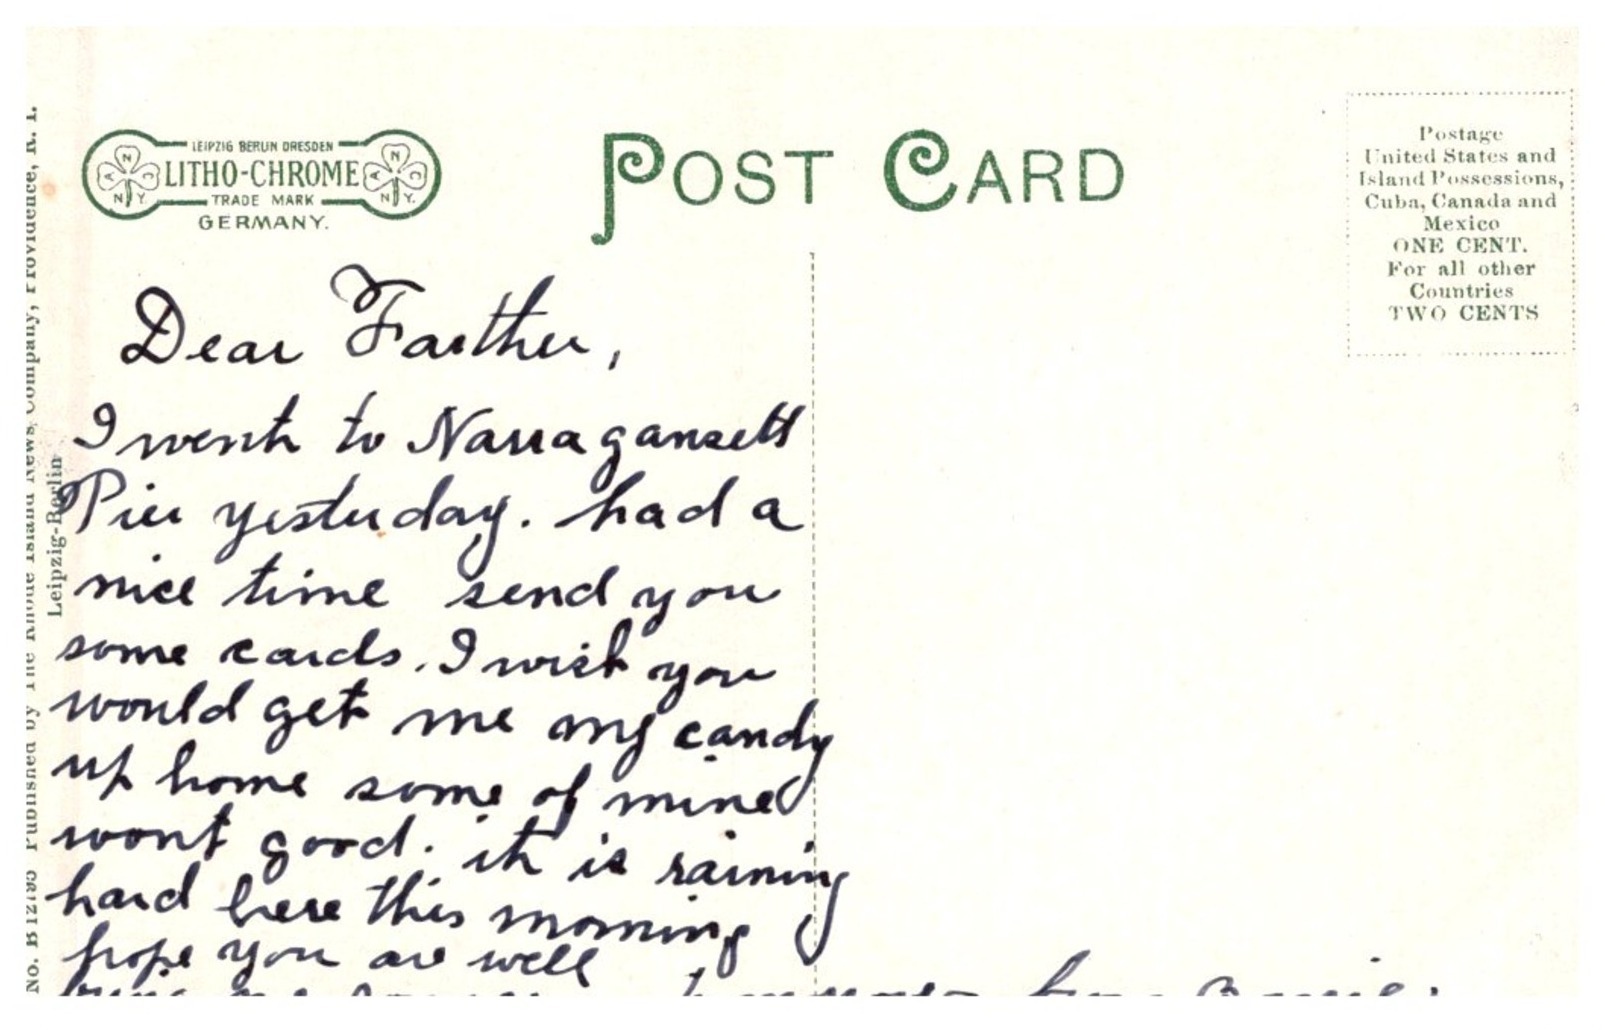 LEIPZIG BERLIN DRESDEN
LITHO-CHROME
TRADE MARK
GERMANY.
A N C N.Y.
A N C N.Y.
POST CARD
Postage
United States and
Island Possessions,
Cuba, Canada and
Mexico
ONE CENT.
For all other
Countries
TWO CENTS
No. B 12795 Published by The Rhode Island News Company, Providence, R. I.
Leipzig-Berlin
Dear Farther,
I went to Narragansett
Pier yesterday. had a
nice time send you
some cards. I wish you
would get me my candy
up home some of mine
wont good. it is raining
hard here this morning
hope you are well